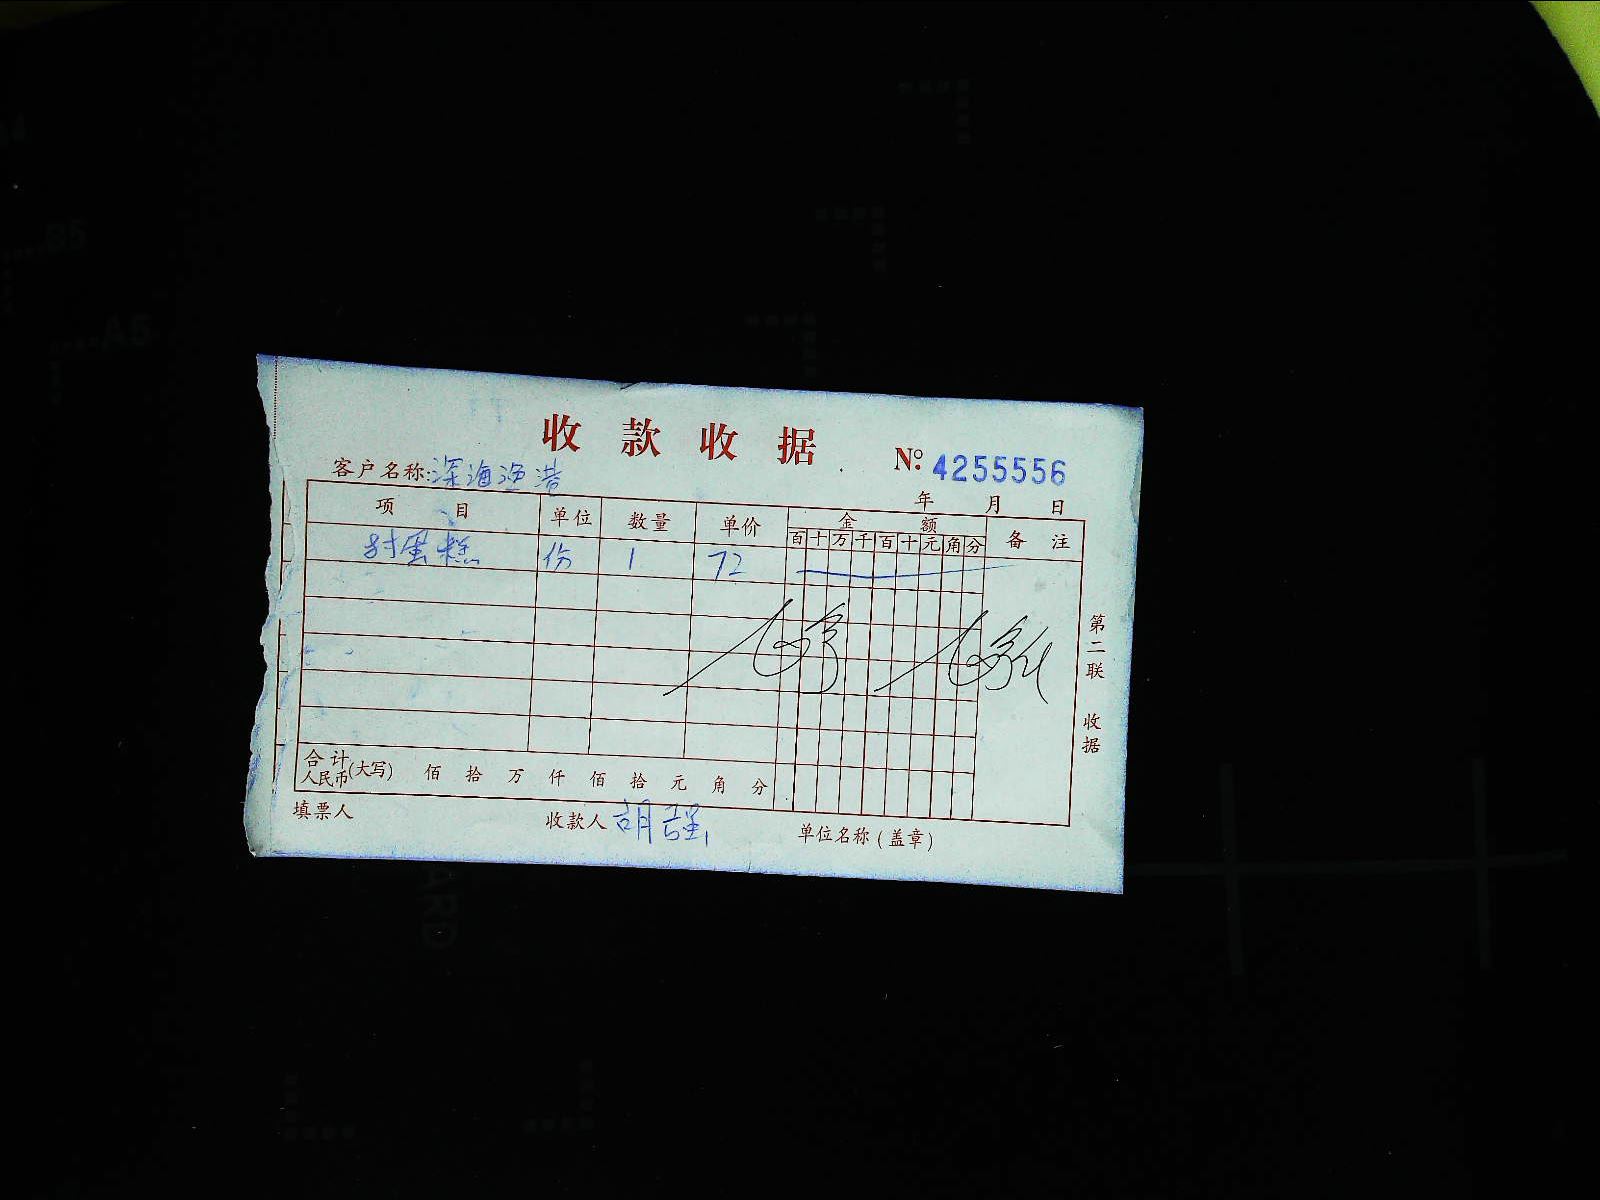 收款收据
№: 4255556
客户名称: 深海渔港
年 月 日
项目 单位 数量 单价 金额 备注
百 十 万 千 百 十 元 角 分
蛋糕 份 1 72
合计人民币(大写) 佰 拾 万 仟 佰 拾 元 角 分
填票人 收款人 胡强 单位名称(盖章)
第二联 收据
A5